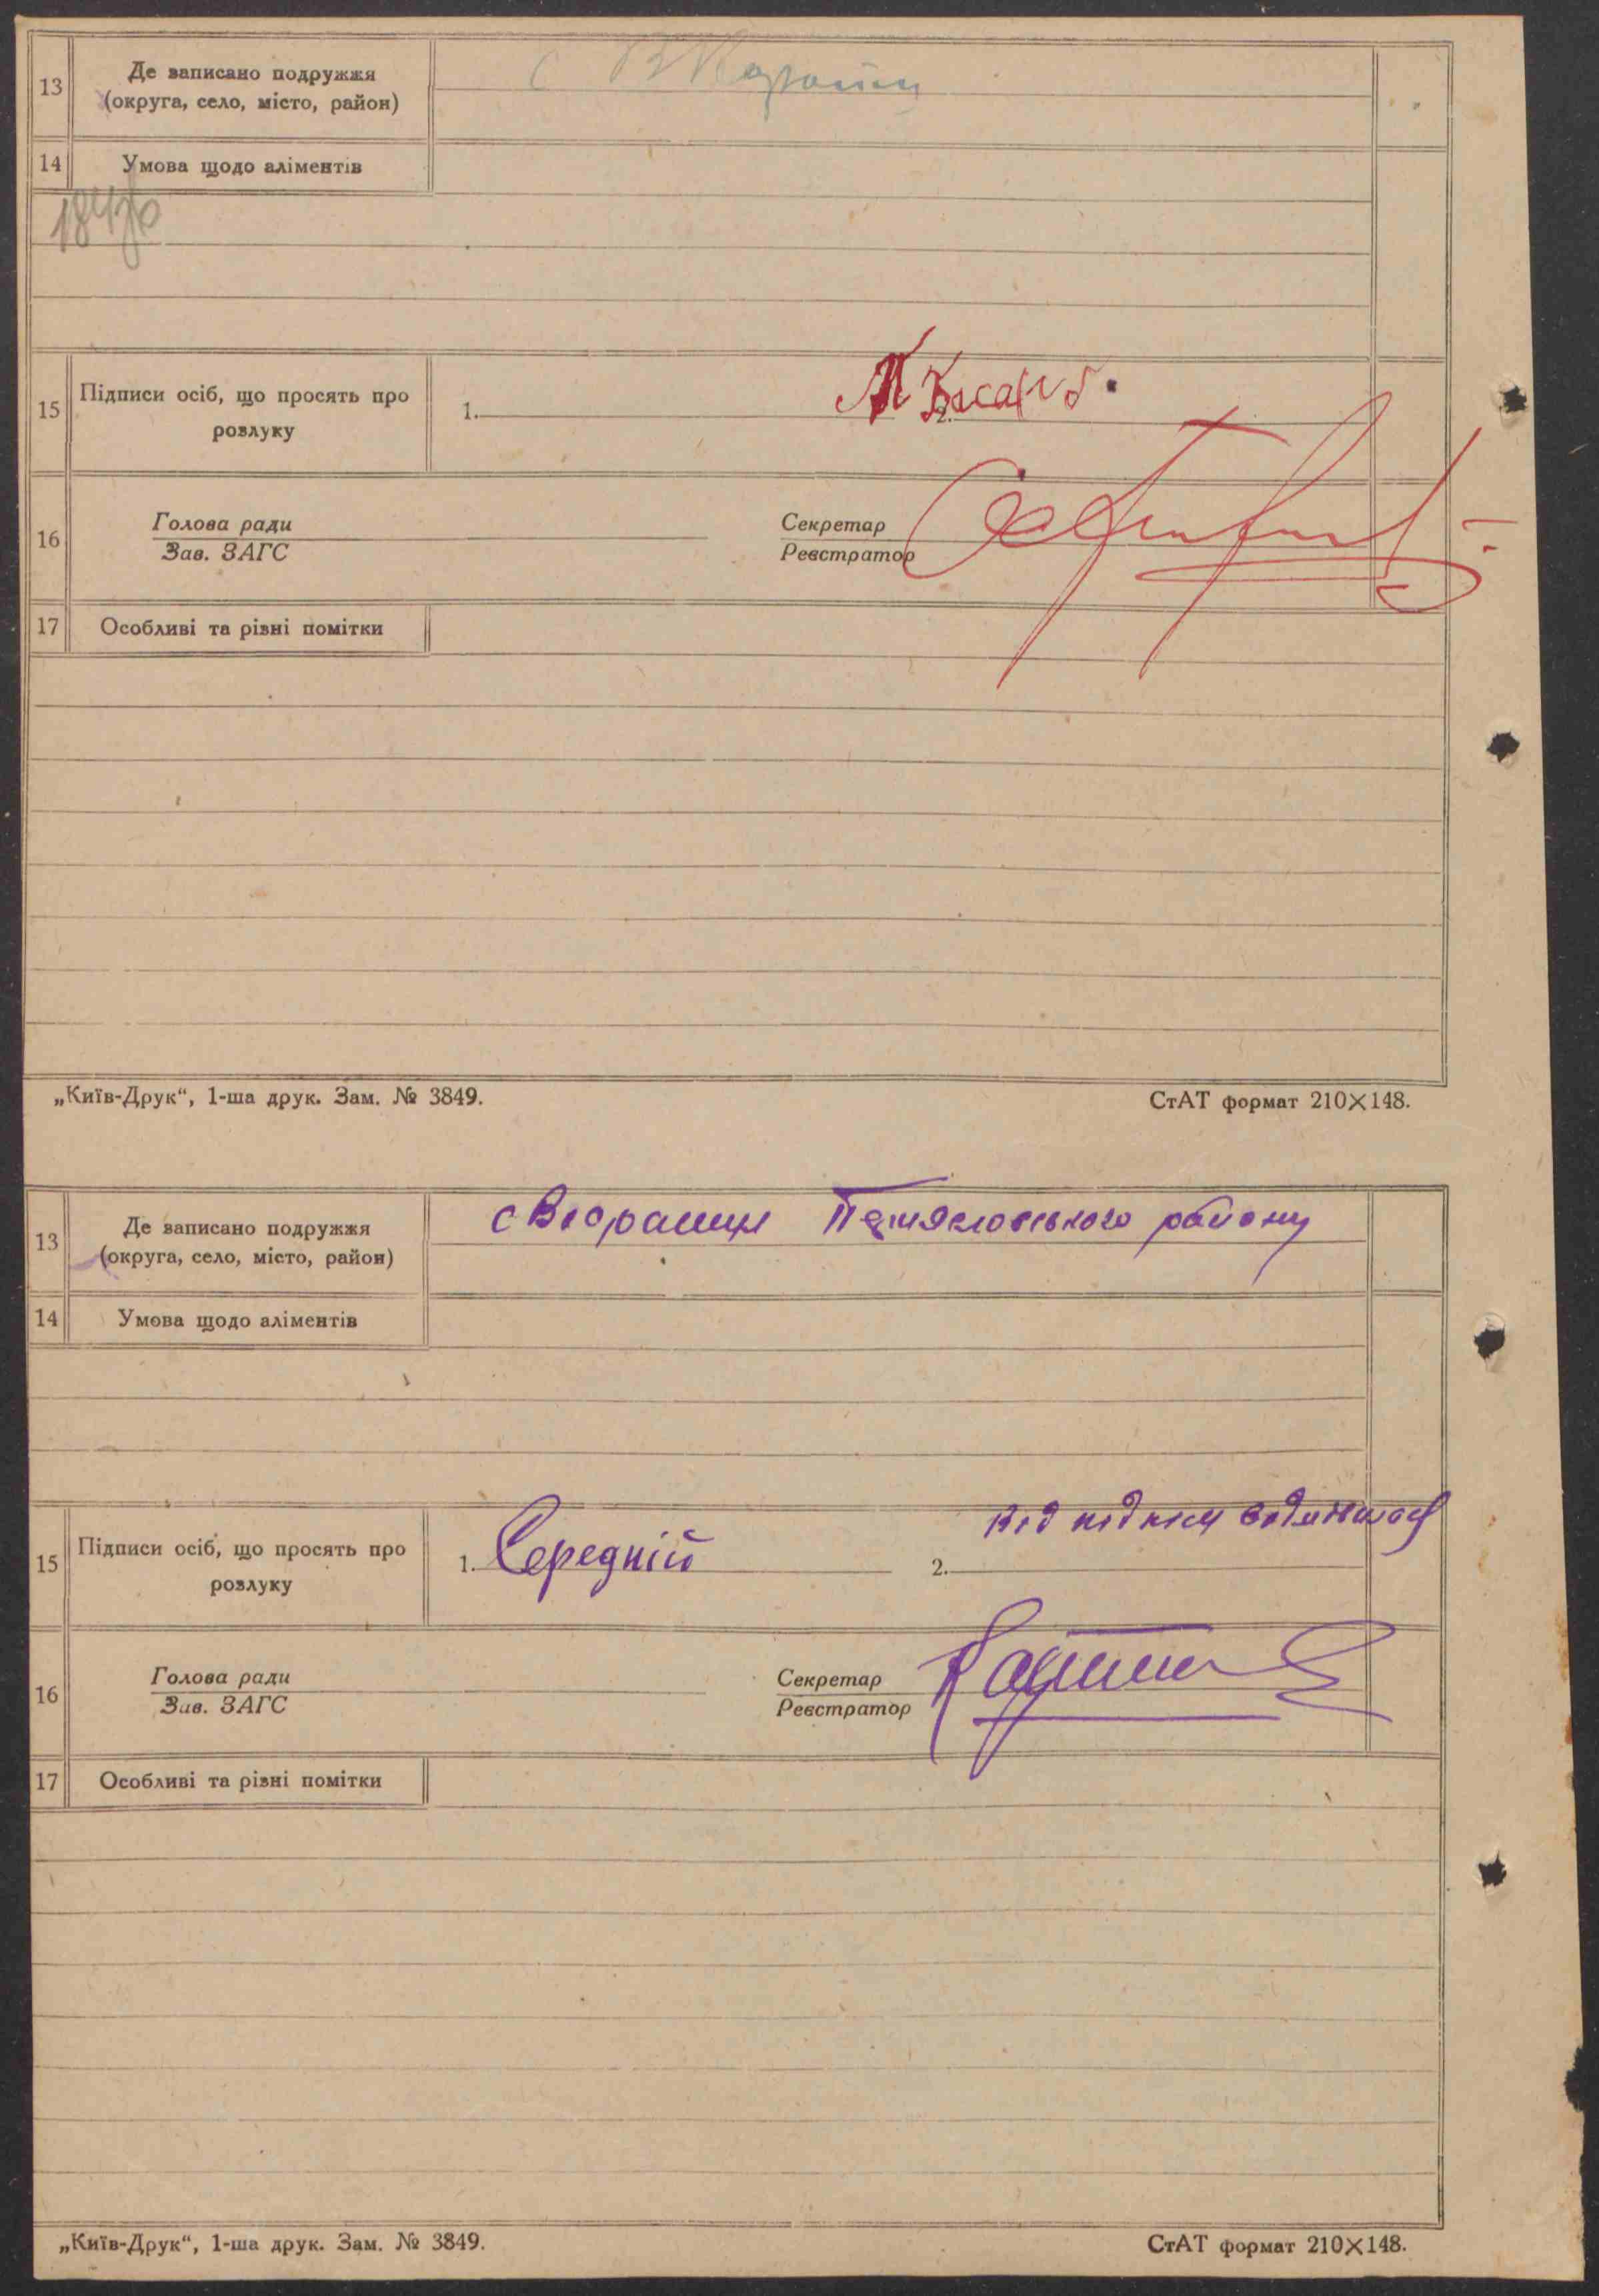 13 Де записано подружжя
(округа, село, місто, район)
с В Кара
14 Умова щодо аліментів
15 Підписи осіб, що просять про
розлуку
1. 2.
16 Голова ради
Зав. ЗАГС
Секретар
Реєстратор
17 Особливі та різні помітки
„Київ-Друк“, 1-ша друк. Зам. № 3849. СтАТ формат 210×148.
13 Де записано подружжя
(округа, село, місто, район)
с району
14 Умова щодо аліментів
15 Підписи осіб, що просять про
розлуку
1. Середній 2. від підпису
16 Голова ради
Зав. ЗАГС
Секретар
Реєстратор
17 Особливі та різні помітки
„Київ-Друк“, 1-ша друк. Зам. № 3849. СтАТ формат 210×148.